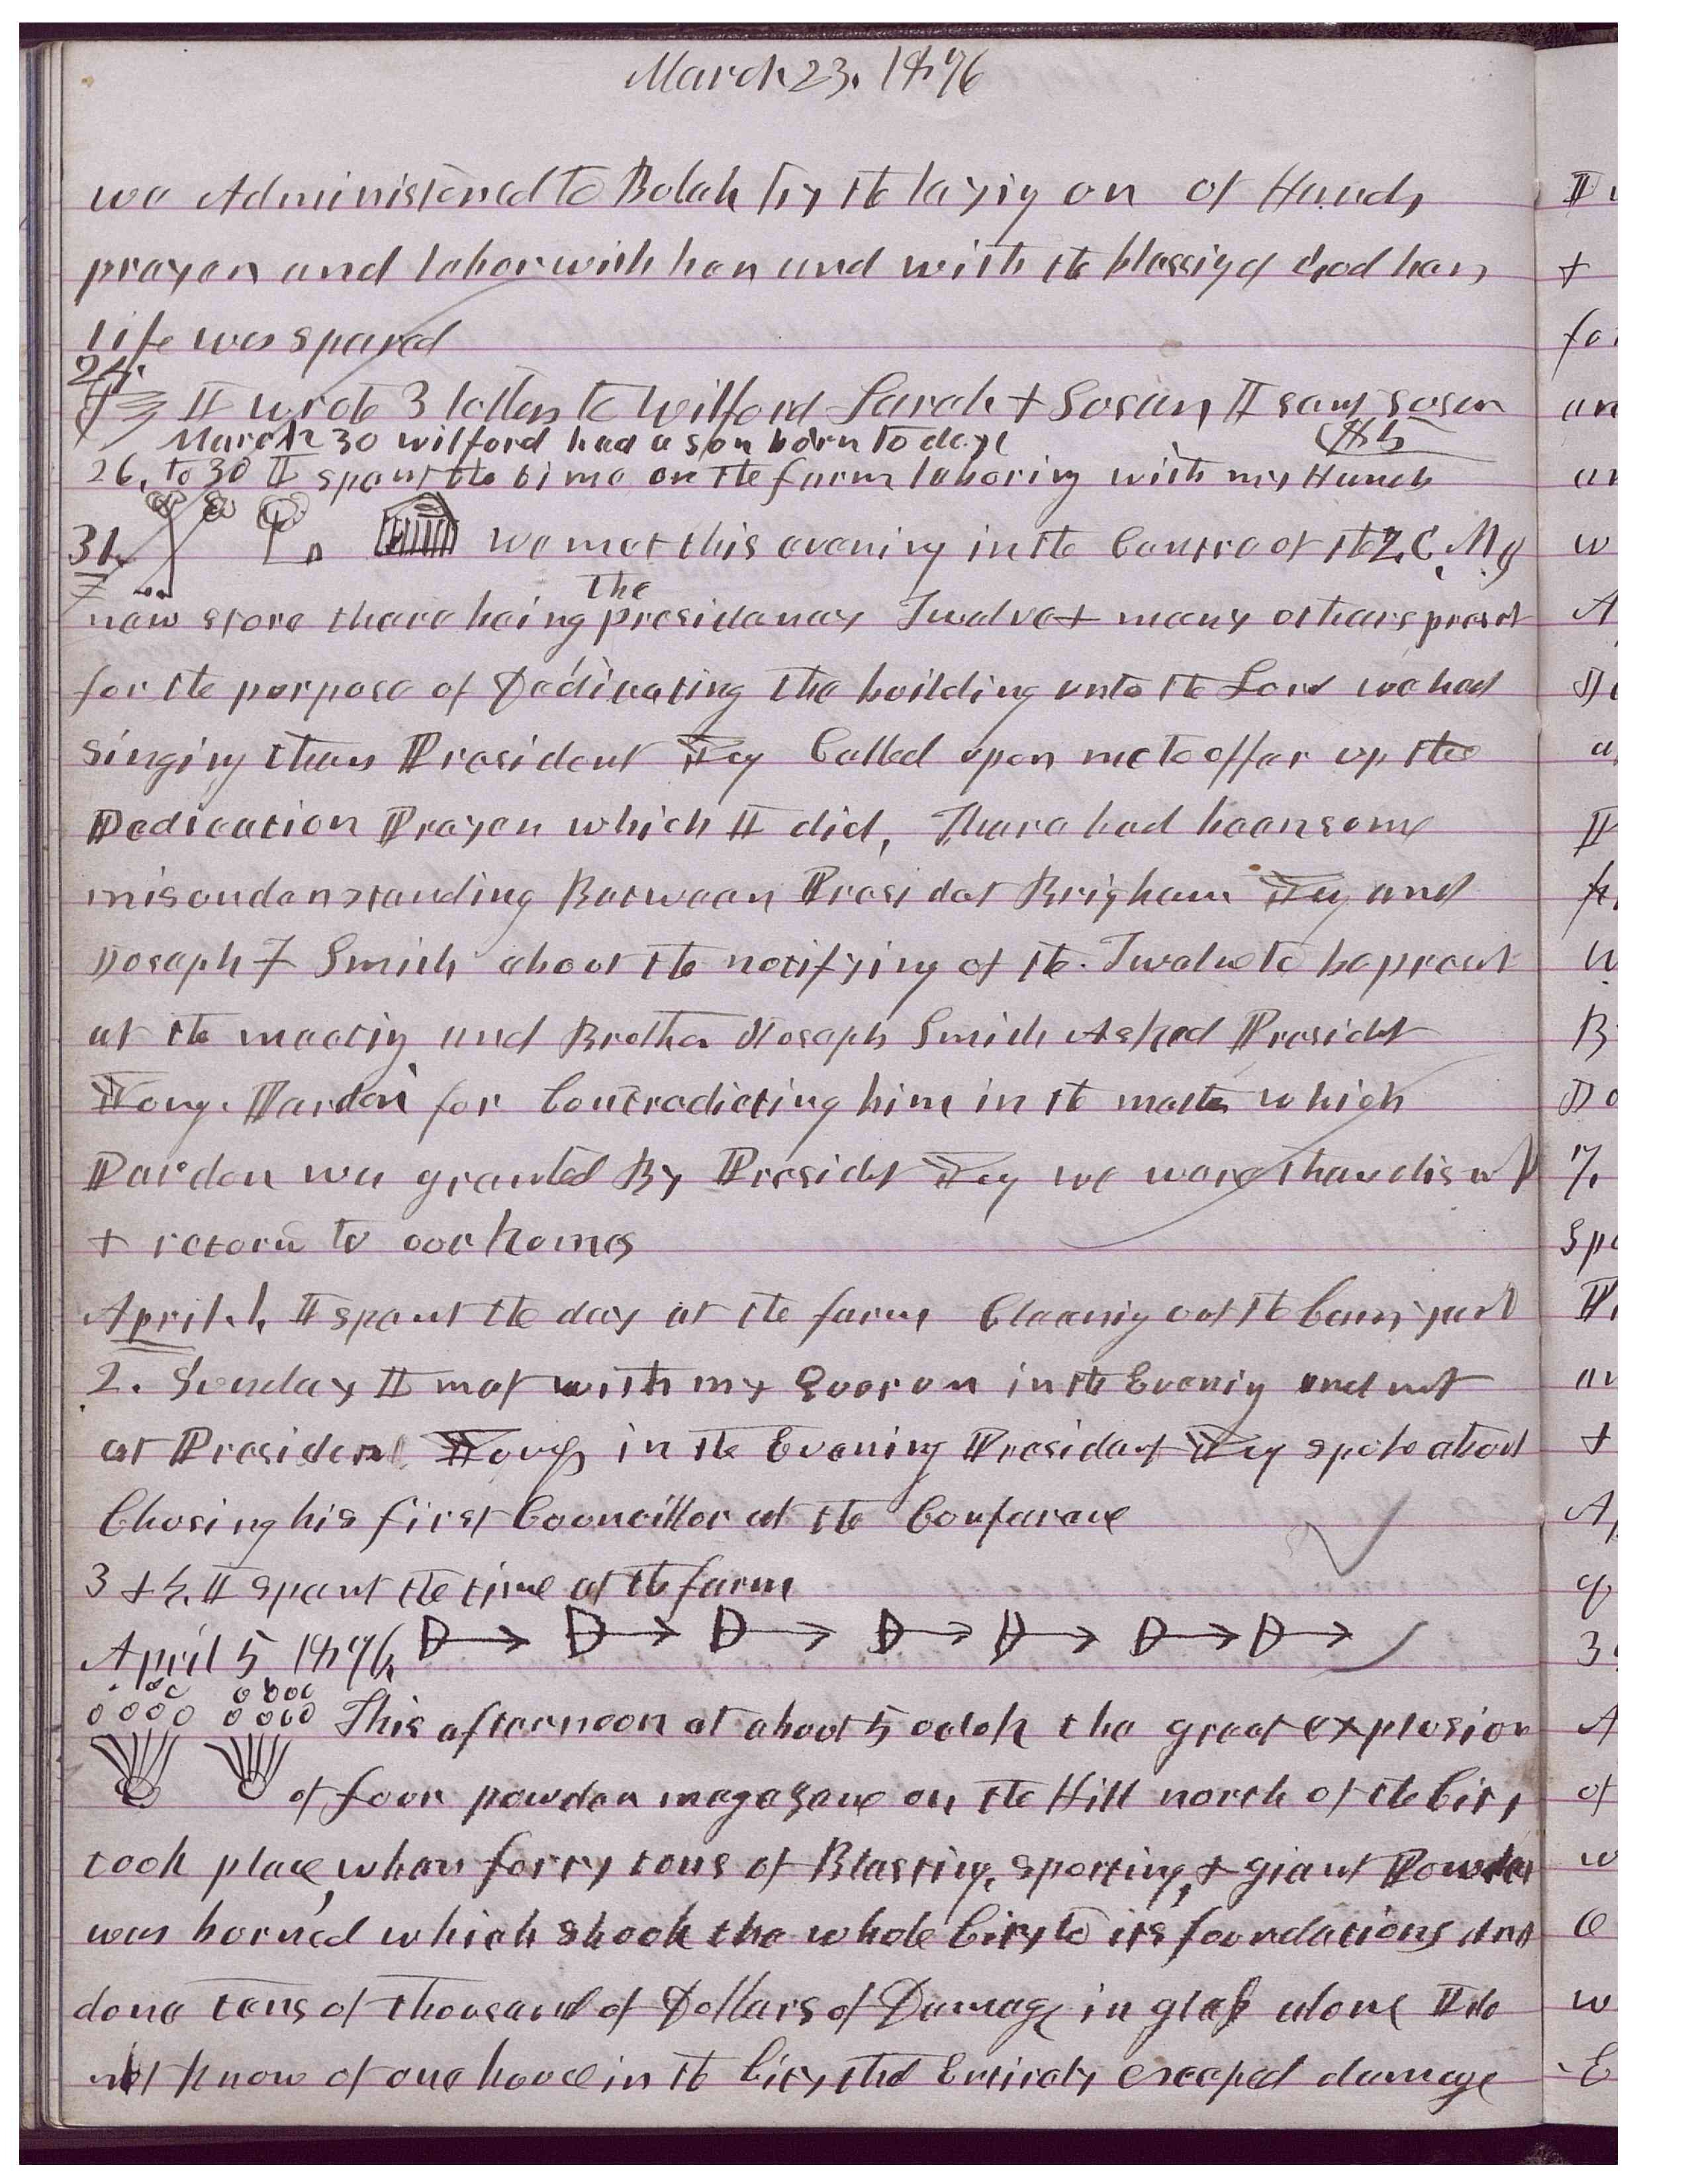 March 23. 1876
we Administered to Bulah by the laying on of Hands
prayer and labor with her and with the blessing of God her
life was spared
24.
I wrote 3 letters to Wilford Sarah + Susan, I gave Susan
March 30 Wilford had a son born to day $5
26, to 30 I spent the time on the farm laboring with my Hands
31. we met this evening in the Centre of the Z.C.M.I
the
new store there being presidency Twelve + many others present
for the purpose of Dedicating the building unto the Lord we had
singing then President Yg Called upon me to offer up the
Dedication Prayer which I did, There had been some
misunderstanding Between Presidet Brigham Yg and
Joseph F Smith about the notifying of the Twelve to be present
at the meeting and Brother Joseph Smith Asked Presidet
Young Pardon for Contradicting him in the matter which
Pardon was granted By Presidet Yg we were then
+ return to our homes
April. 1. I spent the day at the farm Cleaning out the barn yard
2. Sunday I met with my Quorum in the Evening and met
at President Youngs in the Evening President Yg spoke about
Chosing his first Councillor at the Conference
3 + 4. I spent the time at the farm
April 5 1876,
This afternoon at about 5 oclok the great explosion
of four powder magazane on the Hill north of the City
took place, when forty tons of Blasting, sporting, + giant Powder
was burned which shook the whole City to its foundations And
done tens of thousand of Dollars of Damage in glass alone I do
not know of one house in the City that Entirely escaped damage